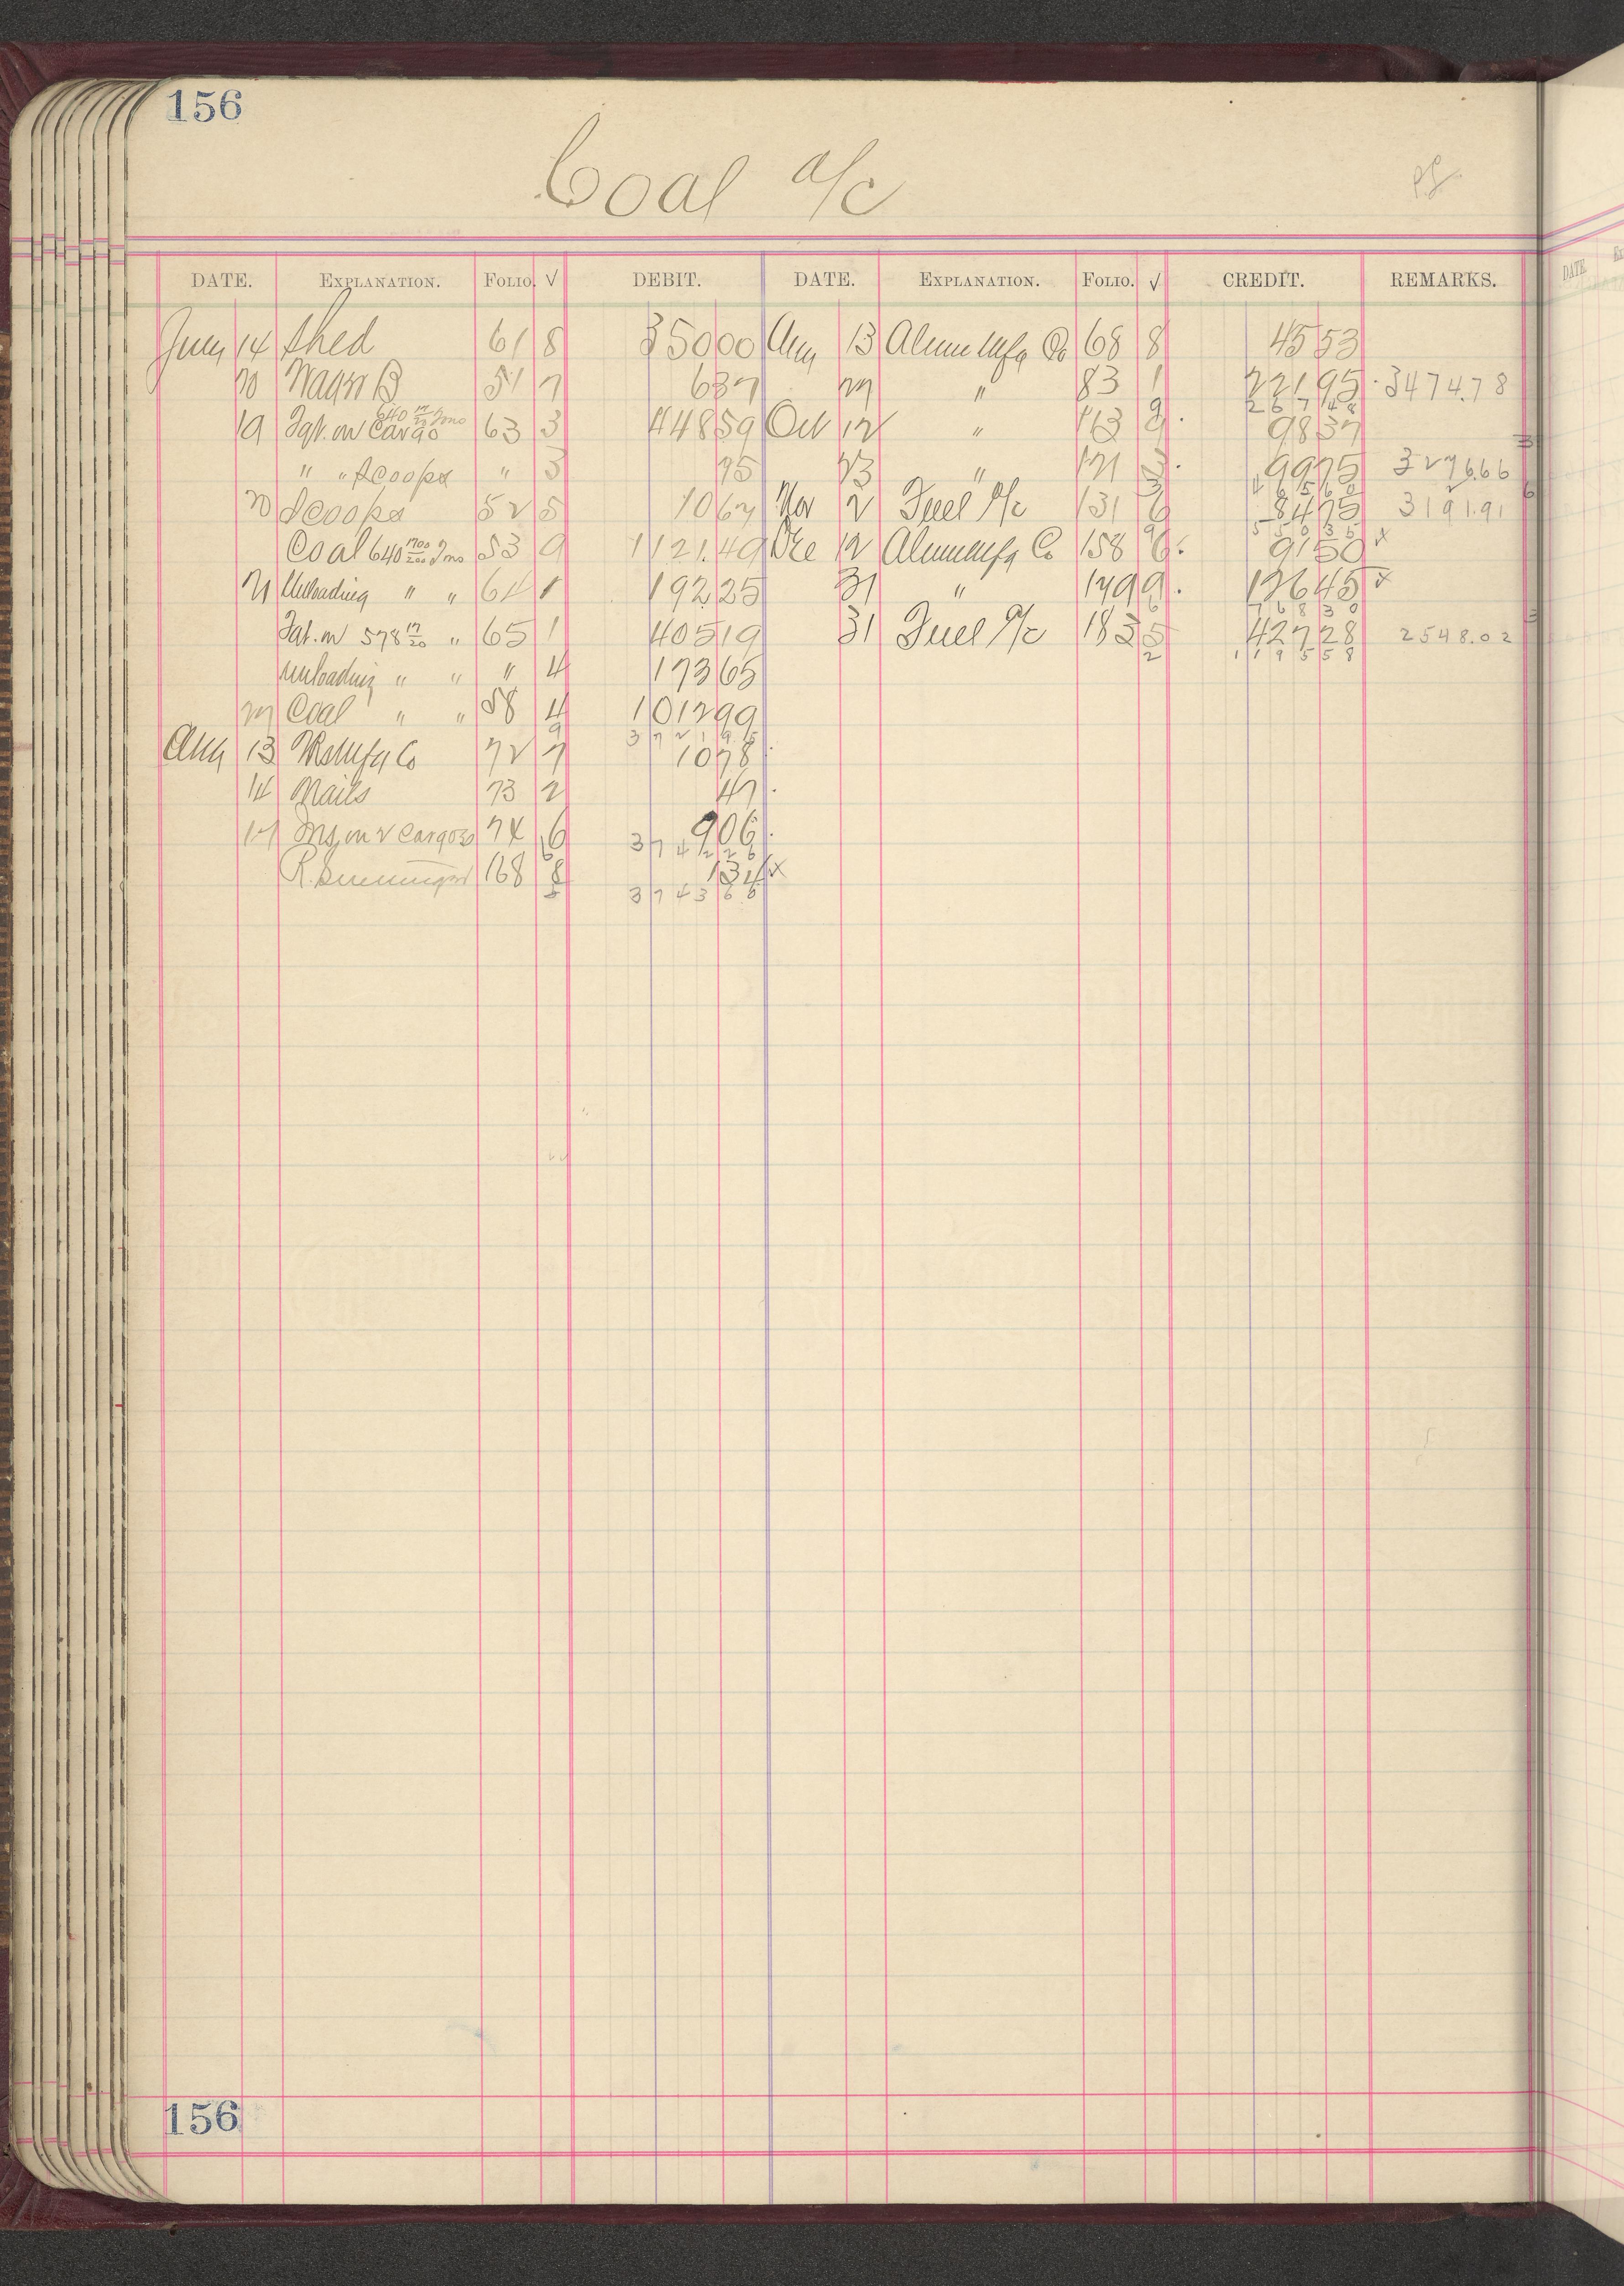 156
Coal a/c
DATE. EXPLANATION. FOLIO. √ DEBIT. DATE. EXPLANATION. FOLIO. √ CREDIT. REMARKS.
14 Shed 61 8 350 00 Aug 13 Alum Mfg Co 68 8 45 53
20 51 7 6 37 27 " 83 1 221 95 3474.78
640 17/20 267 48
19 on Cargo 63 3 448 59 Oct 12 " 113 98 37
" " Scoops " 3 75 23 " 121 99 75 3276.66
20 Scoops 52 5 10 67 Nov 2 Fuel a/c 131 6 84 75 3191.91
550 35
Coal 640 1700/2000 53 9 1121.49 Dec 12 Alum Mfg Co 158 6 91 50 x
21 Unloading " " 64 1 192 25 31 " 179 9 126 45 x
768 30
578 12/20 " 65 1 405 19 31 Fuel a/c 183 5 427 28 2548.02
2 1195 58
Unloading " " " 4 173 65
27 Coal " " 58 4 1012 99
9
Aug 13 Mfg Co 72 7 10 78
14 Nails 73 2 47
17 on 2 Cargoes 74 6 9 06
3742 26
R. 168 8 1 34 x
3743 66
156